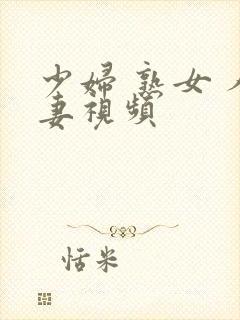 少婦熟女人
妻視頻
恬米